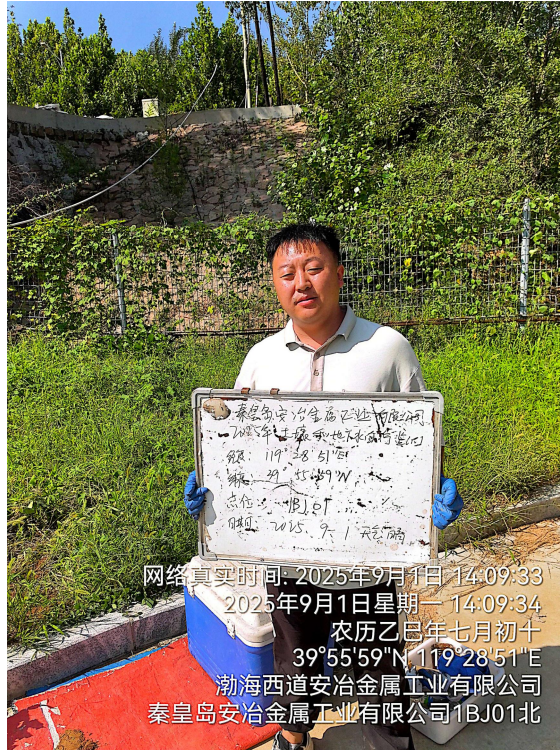 秦皇岛安冶金属工业有限公司
2025年土壤和地下水自行监测
经度: 119°28′51″E
纬度: 39°55′59″N
点位: 1BJ01
日期: 2025.9.1 天气:晴
网络真实时间: 2025年9月1日 14:09:33
2025年9月1日星期一 14:09:34
农历乙巳年七月初十
39°55'59"N 119°28'51"E
渤海西道安冶金属工业有限公司
秦皇岛安冶金属工业有限公司1BJ01北